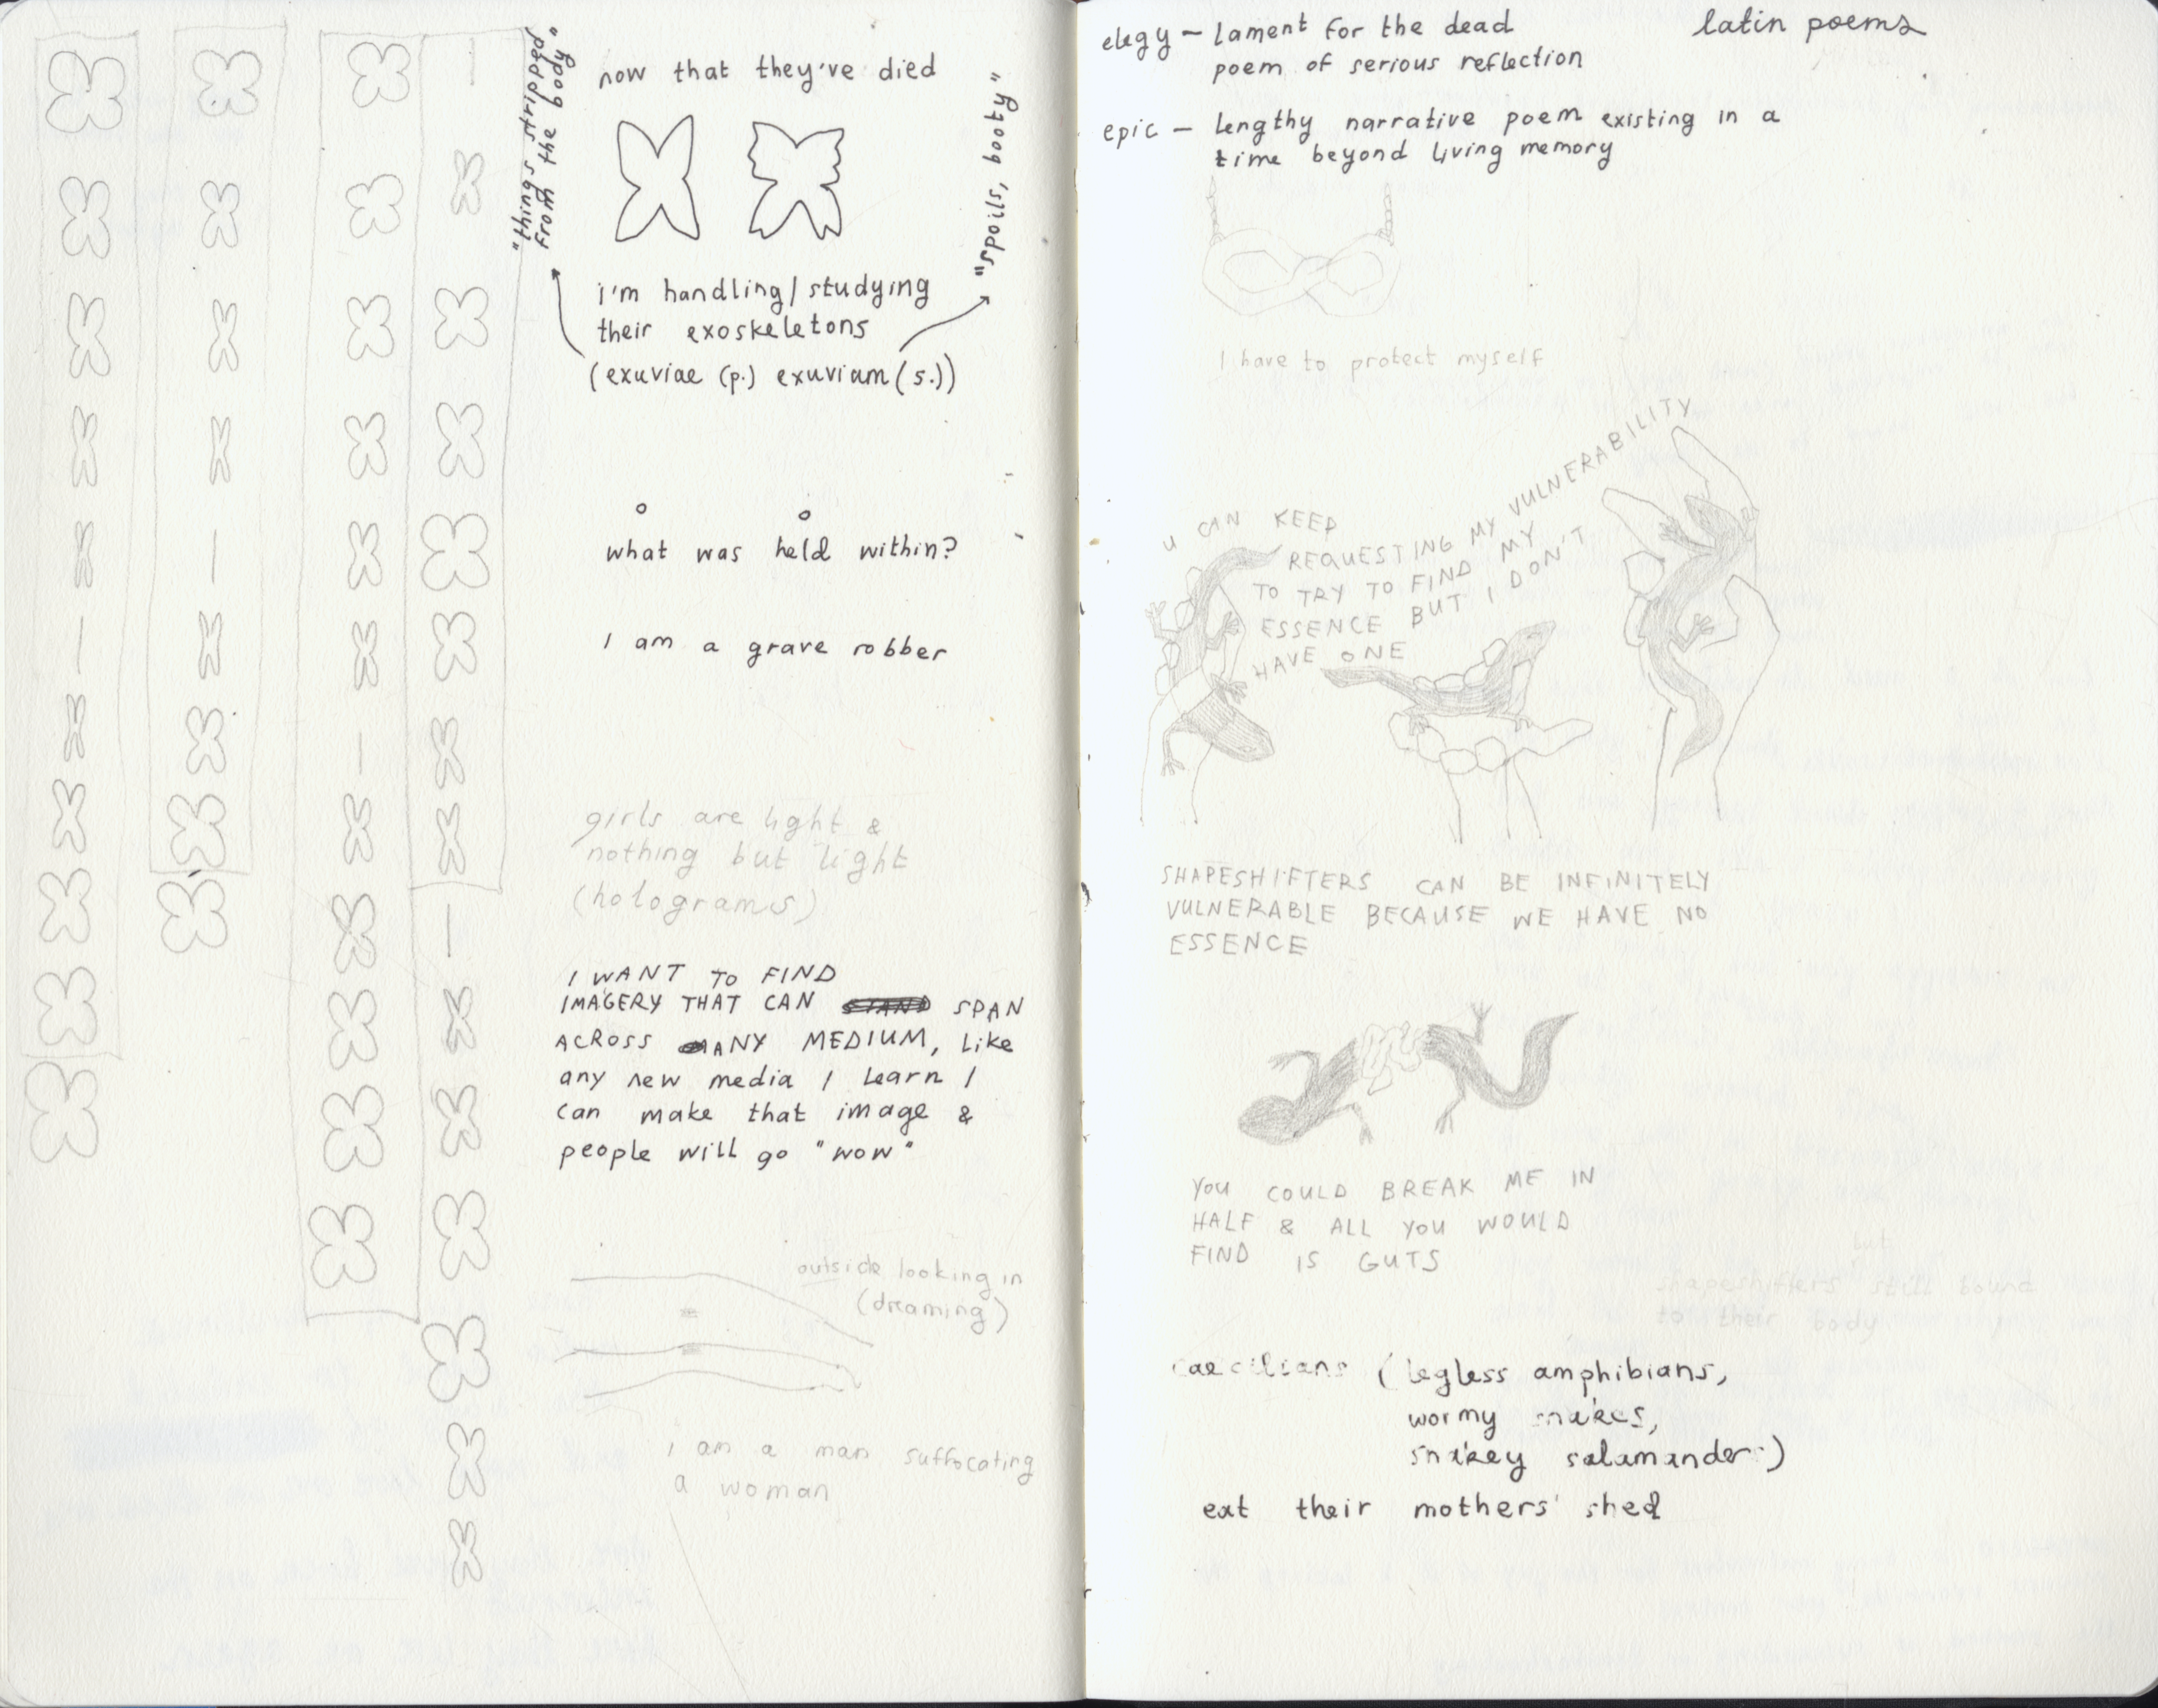 "things stripped
from the body"
now that they've died
"spoils, booty"
i'm handling/studying
their exoskeletons
(exuviae (p.) exuviam (s.))
what was held within?
I am a grave robber
girls are light &
nothing but light
(holograms)
I WANT TO FIND
IMAGERY THAT CAN SPAN
ACROSS ANY MEDIUM, like
any new media I learn I
can make that image &
people will go "wow"
outside looking in
(dreaming)
i am a man suffocating
a woman
latin poems
elegy – lament for the dead
poem of serious reflection
epic – lengthy narrative poem existing in a
time beyond living memory
I have to protect myself
U CAN KEEP
REQUESTING MY VULNERABILITY
TO TRY TO FIND MY
ESSENCE BUT I DON'T
HAVE ONE
SHAPESHIFTERS CAN BE INFINITELY
VULNERABLE BECAUSE WE HAVE NO
ESSENCE
YOU COULD BREAK ME IN
HALF & ALL YOU WOULD
FIND IS GUTS
but
shapeshifters still bound
to their body
caecilians (legless amphibians,
wormy snakes,
snakey salamanders)
eat their mothers' shed